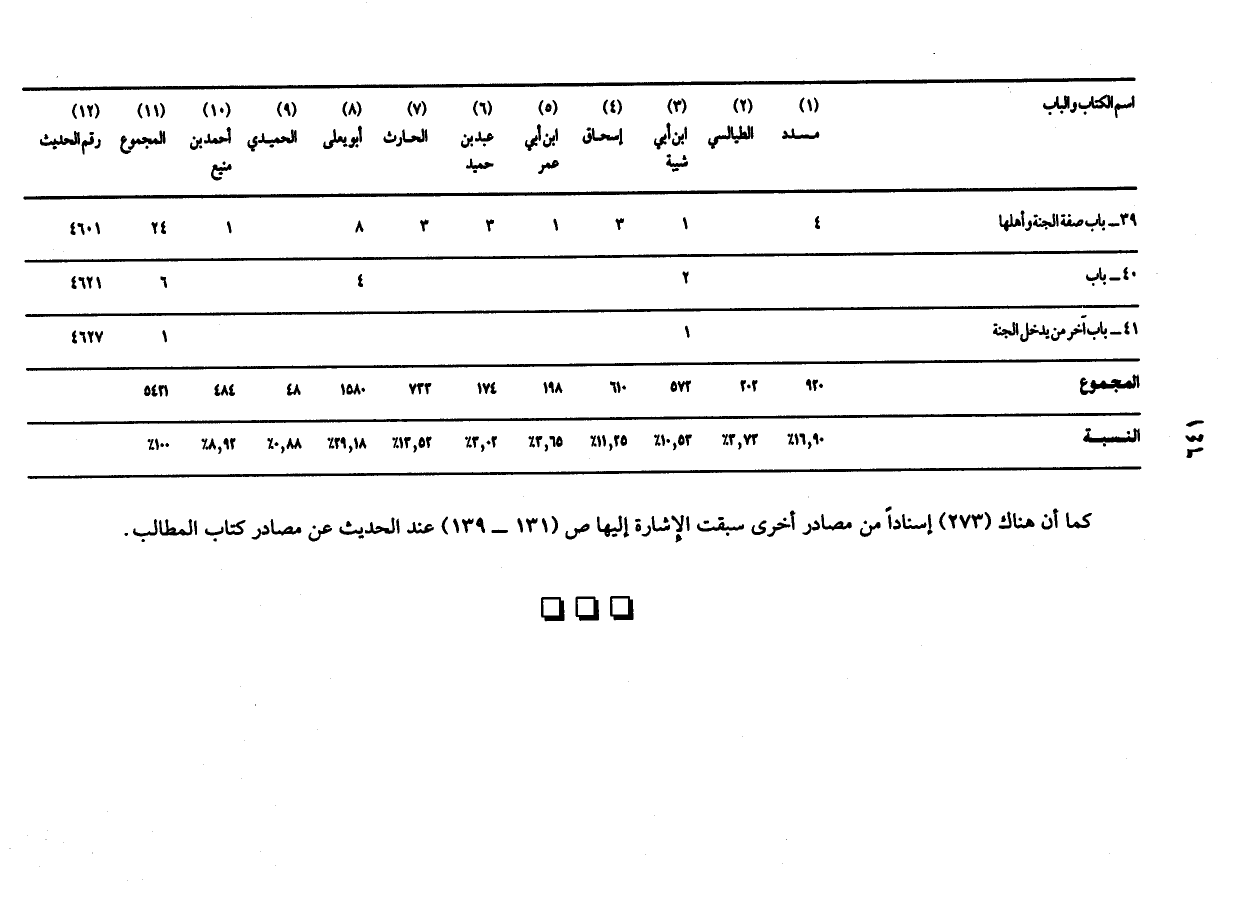 اسم الكتاب والباب (١) (٢) (٣) (٤) (٥) (٦) (٧) (٨) (٩) (١٠) (١١) (١٢)
مسدد الطيالسي ابن أبي إسحاق ابن أبي عبد بن الحارث أبو يعلى الحميدي أحمد بن المجموع رقم الحديث
شيبة عمر حميد منيع
٣٩ــ باب صفة الجنة وأهلها ٤ ١ ٣ ١ ٣ ٣ ٨ ١ ٢٤ ٤٦٠١
٤٠ــ باب ٢ ٤ ٦ ٤٦٢١
٤١ــ باب آخر من يدخل الجنة ١ ١ ٤٦٢٧
المجموع ٩٢٠ ٢٠٢ ٥٧٢ ٦١٠ ١٩٨ ١٧٤ ٧٣٣ ١٥٨٠ ٤٨ ٤٨٤ ٥٤٢١
النسبة ١٦,٩٠٪ ٣,٧٣٪ ١٠,٥٣٪ ١١,٢٥٪ ٣,٦٥٪ ٣,٠٢٪ ١٣,٥٢٪ ٢٩,١٨٪ ٠,٨٨٪ ٨,٩٢٪ ١٠٠٪
كما أن هناك (٢٧٣) إسناداً من مصادر أخرى سبقت الإشارة إليها ص (١٣١ ــ ١٣٩) عند الحديث عن مصادر كتاب المطالب.
٦٤١